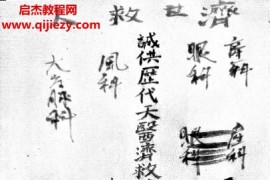 启杰教程网
www.qijiezy.com
濟世救
產科
眼科
眼科
誠供歷代天醫濟救
風科
大方脉科